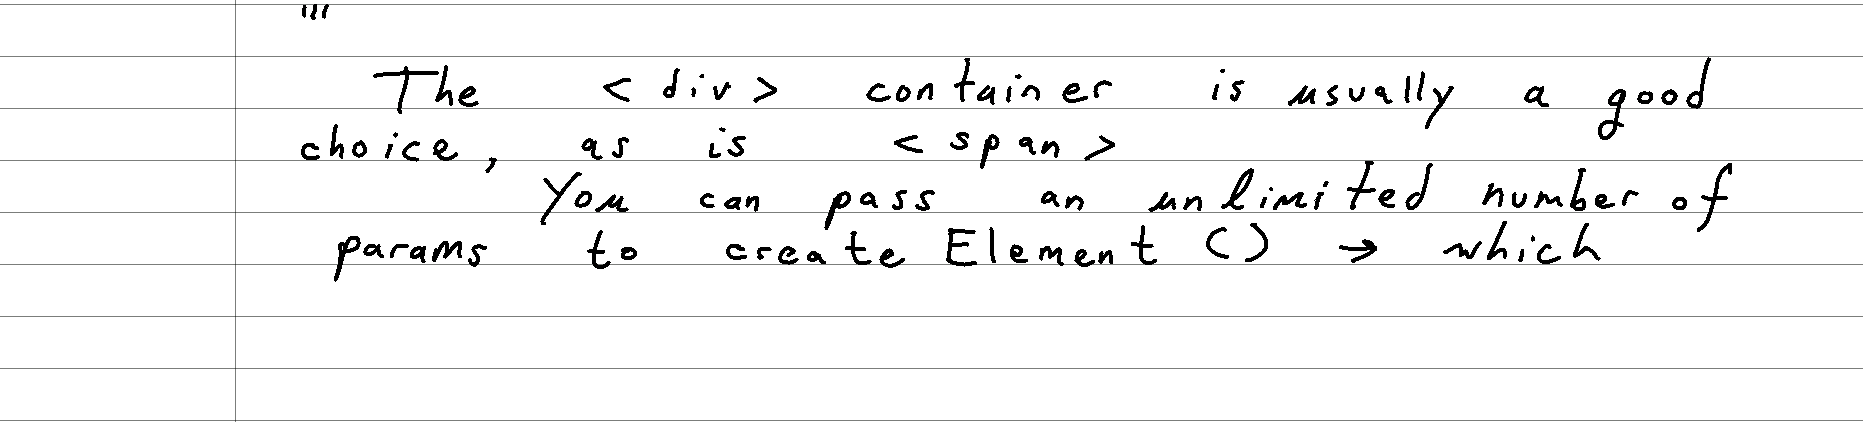 The <div> container is usually a good
choice, as is <span>
You can pass an unlimited number of
params to createElement() → which